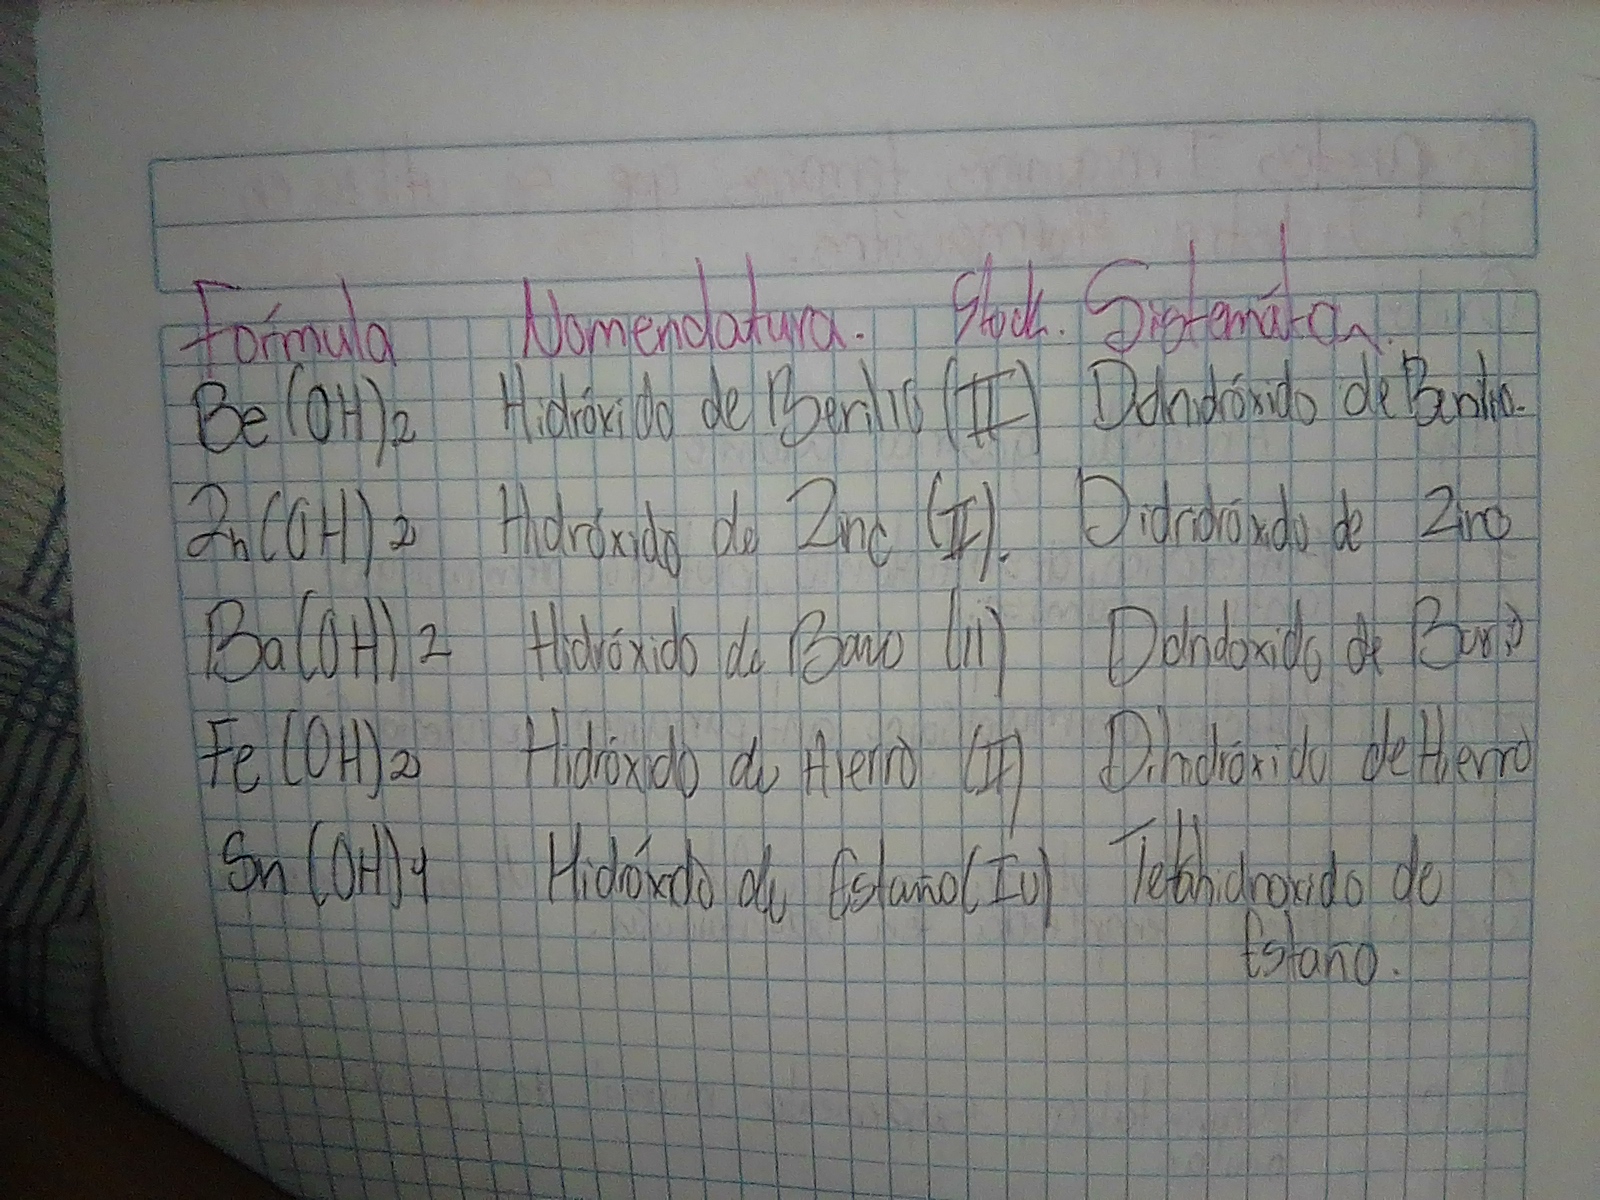 Fórmula Nomenclatura. Stock. Sistemática.
Be(OH)2 Hidróxido de Berilio (II) Dihidróxido de Berilio.
Zn(OH)2 Hidróxido de Zinc (II). Dihidróxido de Zinc
Ba(OH)2 Hidróxido de Bario (II) Dihidoxido de Bario
Fe(OH)2 Hidróxido de Hierro (II) Dihidróxido de Hierro
Sn(OH)4 Hidróxido de Estaño (IV) Tetahidroxido de
Estaño.